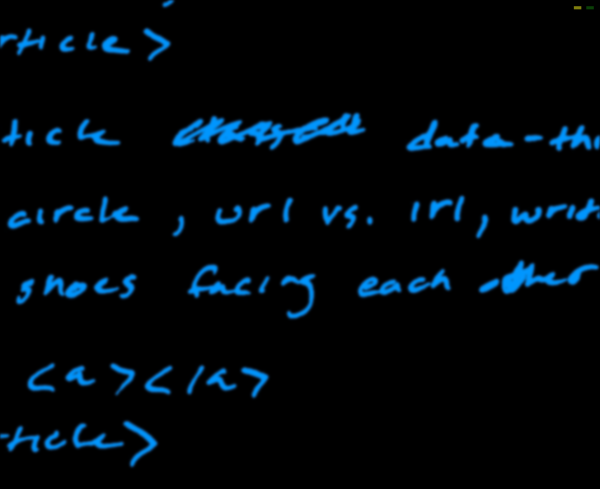 rticle>
tick data-thi
circle, url vs. irl, writ
shoes facing each other
<a></a>
-ticle>